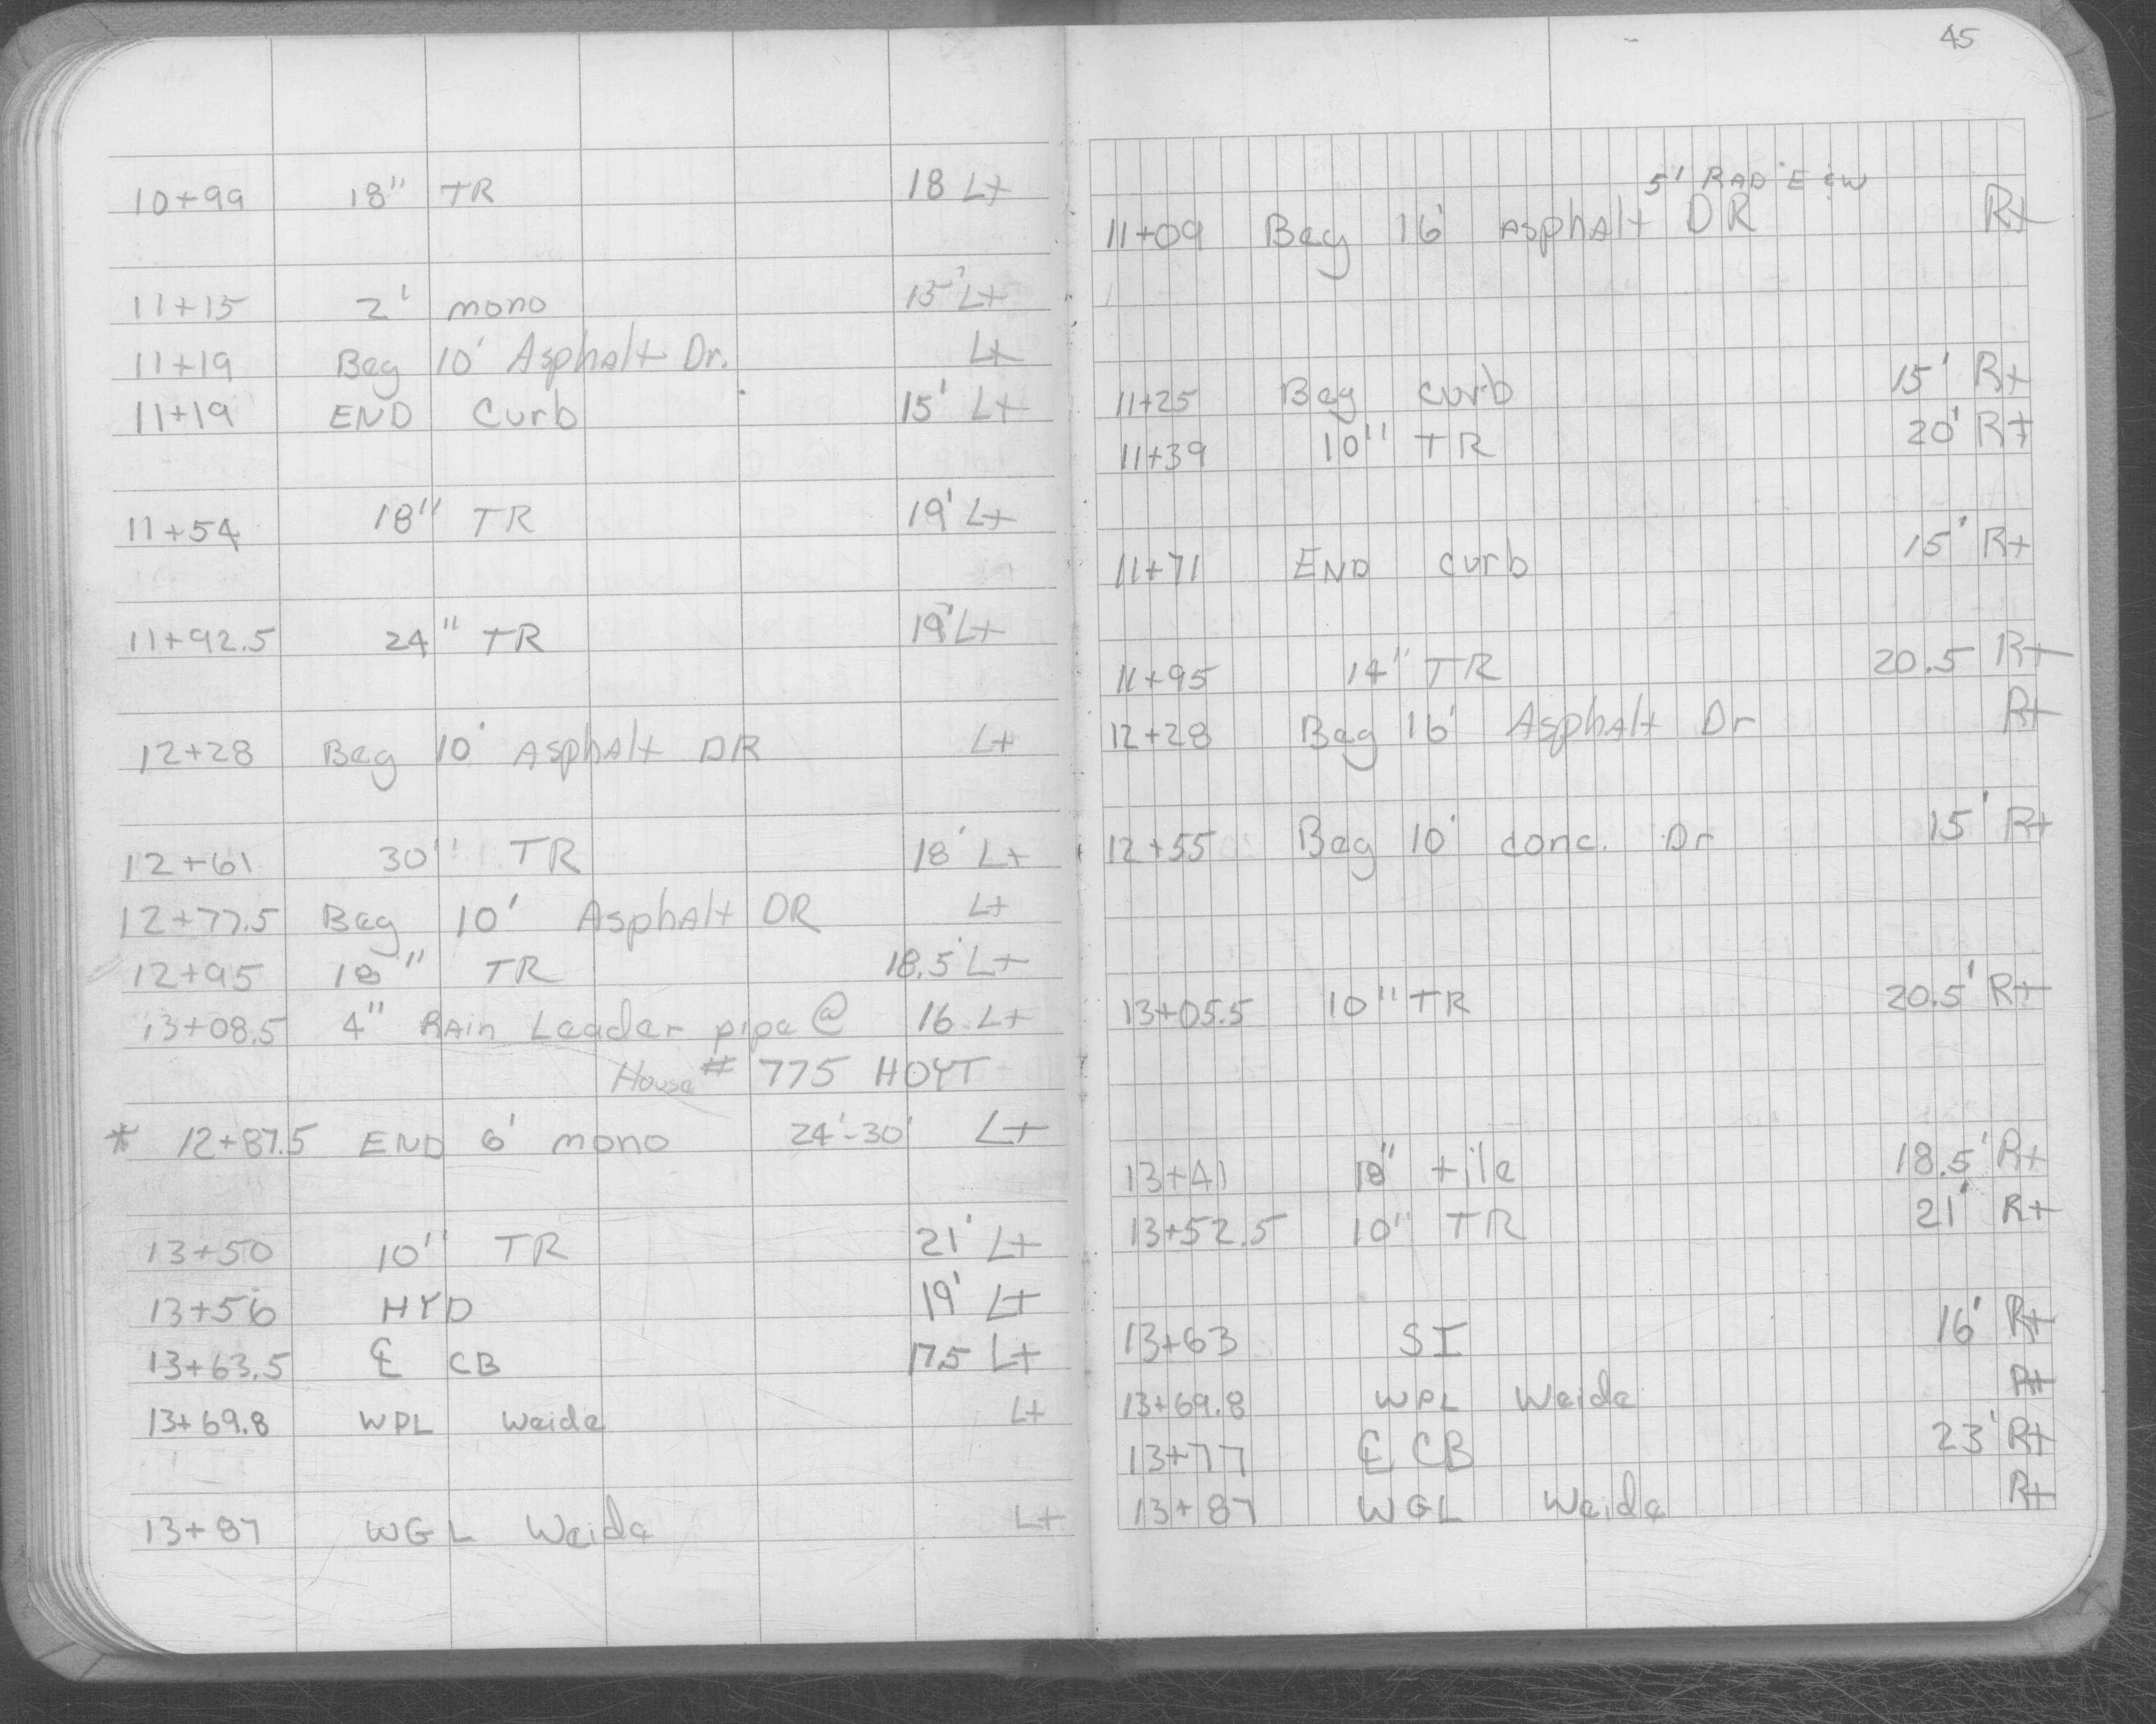 10+99 18" TR 18 Lt
11+15 2' mono 15' Lt
11+19 Beg 10' Asphalt Dr. Lt
11+19 END Curb 15' Lt
11+54 18" TR 19' Lt
11+92.5 24" TR 19' Lt
12+28 Beg 10' Asphalt DR Lt
12+61 30" TR 18' Lt
12+77.5 Beg 10' Asphalt DR Lt
12+95 18" TR 18.5' Lt
13+08.5 4" RAin Leader pipe @ 16 Lt
House # 775 HOYT
* 12+87.5 END 6' mono 24'-30' Lt
13+50 10" TR 21' Lt
13+56 HYD 19' Lt
13+63.5 ℄ CB 17.5 Lt
13+69.8 WPL Weide Lt
13+87 WGL Weide Lt
45
5' RAD E & W
11+09 Beg 16' Asphalt DR Rt
11+25 Beg curb 15' Rt
11+39 10" TR 20' Rt
11+71 END curb 15' Rt
11+95 14" TR 20.5 Rt
12+28 Beg 16' Asphalt Dr Rt
12+55 Beg 10' conc. Dr 15' Rt
13+05.5 10" TR 20.5' Rt
13+41 18" tile 18.5' Rt
13+52.5 10" TR 21' Rt
13+63 SI 16' Rt
13+69.8 WPL Weide Rt
13+77 ℄ CB 23' Rt
13+87 WGL Weide Rt